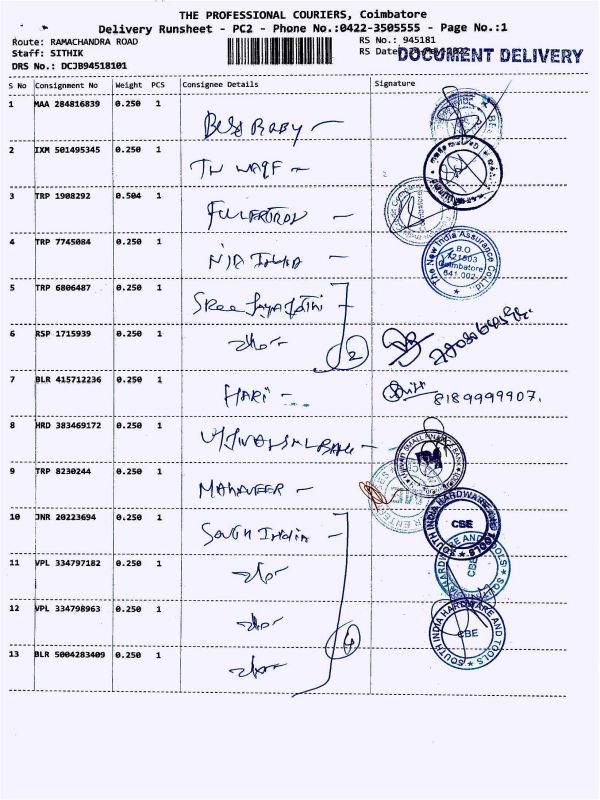 THE PROFESSIONAL COURIERS, Coimbatore
Delivery Runsheet - PC2 - Phone No.:0422-3505555 - Page No.:1
Route: RAMACHANDRA ROAD
RS No.: 945181
Staff: SITHIK
RS Date
DOCUMENT DELIVERY
DRS No.: DCJB94518101
S No Consignment No Weight PCS Consignee Details Signature
1 MAA 284816839 0.250 1
2 IXM 501495345 0.250 1
3 TRP 1908292 0.504 1
4 TRP 7745084 0.250 1 NIA India
The New India Assurance Co. Ltd
B.O
721503
Coimbatore
641 002
5 TRP 6806487 0.250 1 Sree Jayajothi
6 RSP 1715939 0.250 1 2
7 BLR 415712236 0.250 1 HARI - 8189999907.
8 HRD 383469172 0.250 1
9 TRP 8230244 0.250 1 MAHAVEER -
10 JNR 20223694 0.250 1 South India -
SOUTH INDIA HARDWARE AND TOOLS
CBE
11 VPL 334797182 0.250 1
12 VPL 334798963 0.250 1 4
SOUTH INDIA HARDWARE AND TOOLS
CBE
13 BLR 5004283409 0.250 1